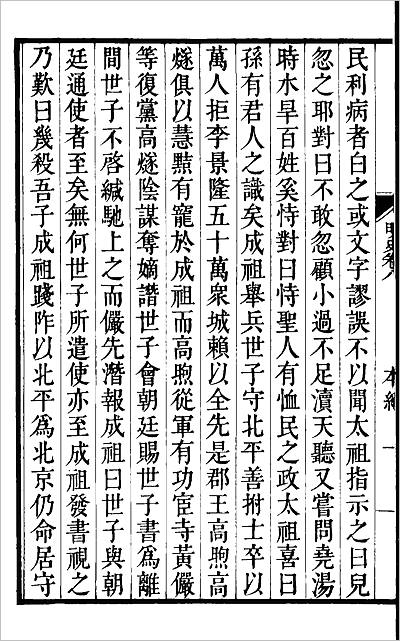 民利病者白之或文字謬誤不以聞太祖指示之曰兒
忽之耶對曰不敢忽顧小過不足瀆天聽又嘗問堯湯
時水旱百姓奚恃對曰恃聖人有恤民之政太祖喜曰
孫有君人之識矣成祖舉兵世子守北平善拊士卒以
萬人拒李景隆五十萬衆城賴以全先是郡王高煦高
燧俱以慧黠有寵於成祖而高煦從軍有功宦寺黃儼
等復黨高燧陰謀奪嫡譖世子會朝廷賜世子書爲離
間世子不啓緘馳上之而儼先潛報成祖曰世子與朝
廷通使者至矣無何世子所遣使亦至成祖發書視之
乃歎曰幾殺吾子成祖踐阼以北平爲北京仍命居守
明史卷八 本紀